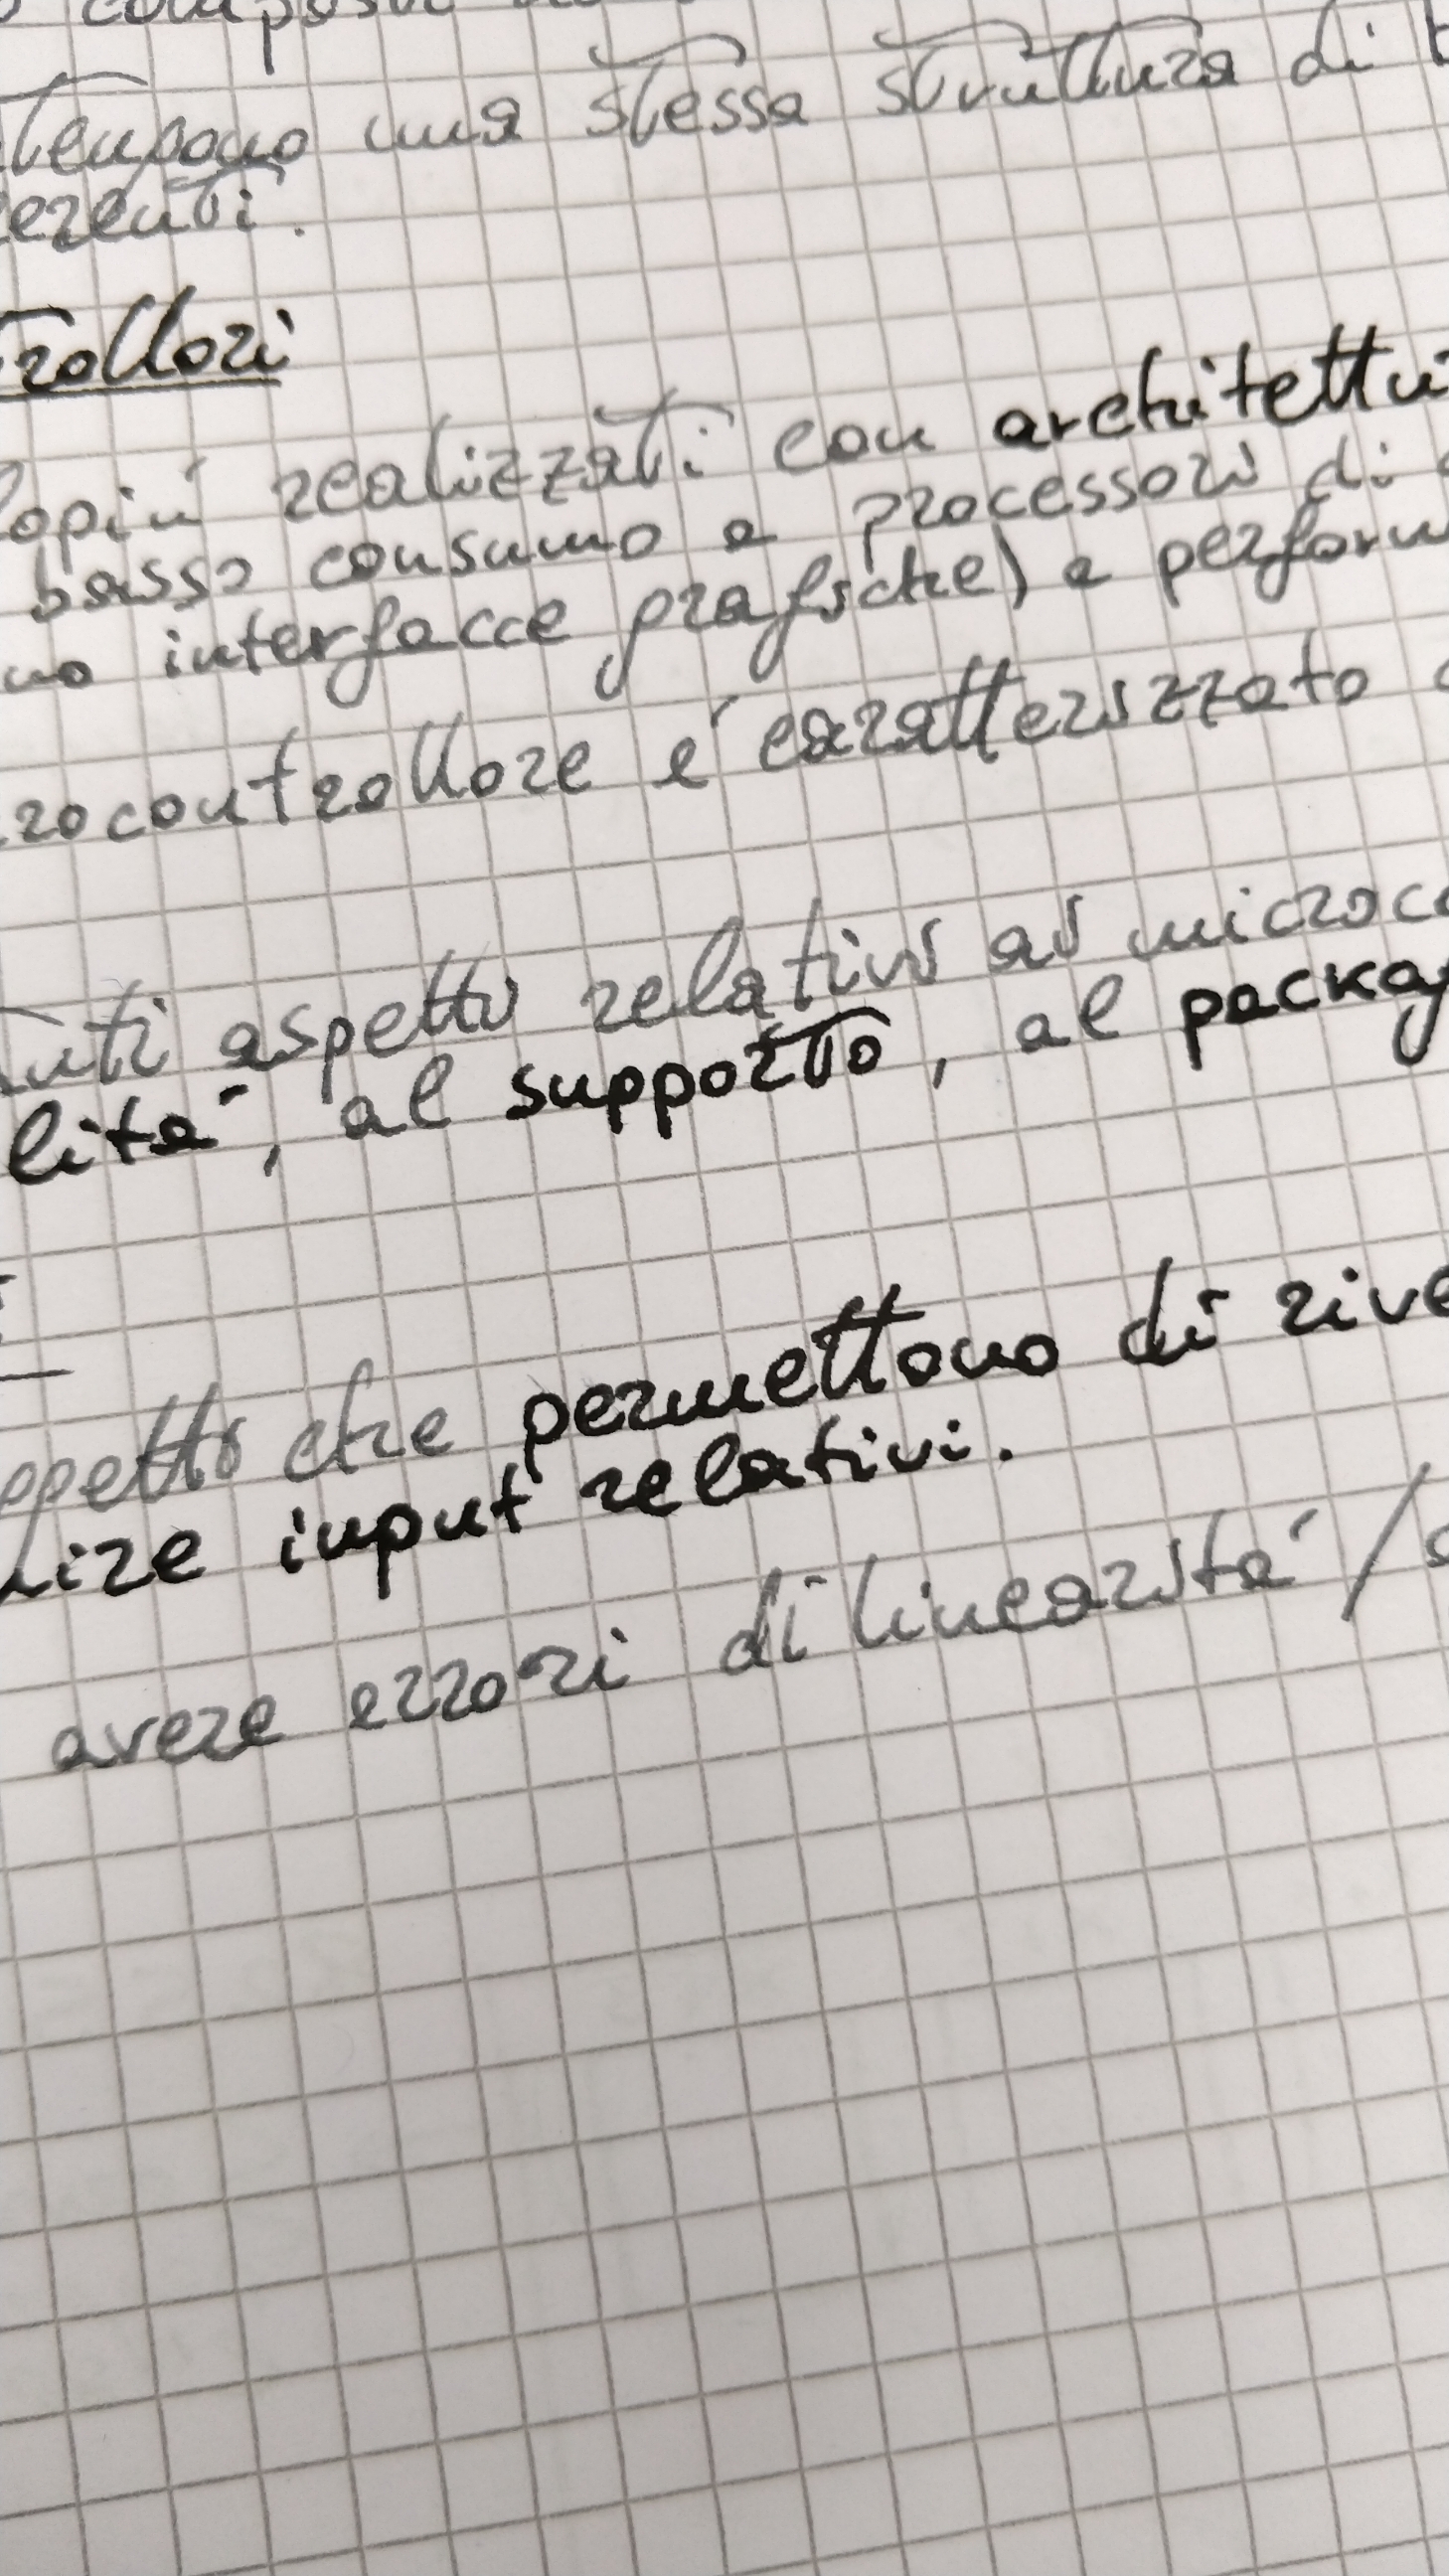 una stessa struttura di
erenti.
trollori
lopiú realizzati con architettu
basso consumo a processori di
no interfacce grafiche) a perform
rocontrollore é caratterizzato
unti aspetti relativi ai microco
litá, al supporto, al packag
ggetti che permettono di rive
nire input relativi.
avere errori di linearitá /